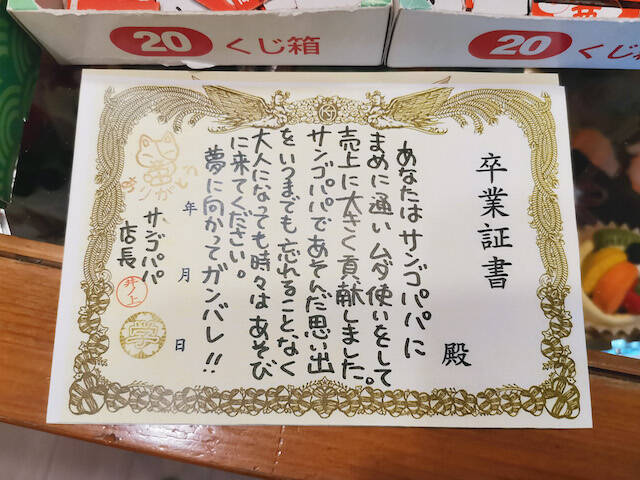 20 くじ箱
20 くじ箱
卒業証書
殿
あなたはサンゴパパに
まめに通いムダ使いをして
売上に大きく貢献しました。
サンゴパパであそんだ思い出
をいつまでも忘れることなく
大人になっても時々はあそび
に来てください。
夢に向かってガンバレ!!
年 月 日
サンゴパパ
店長
井上
ありがとう